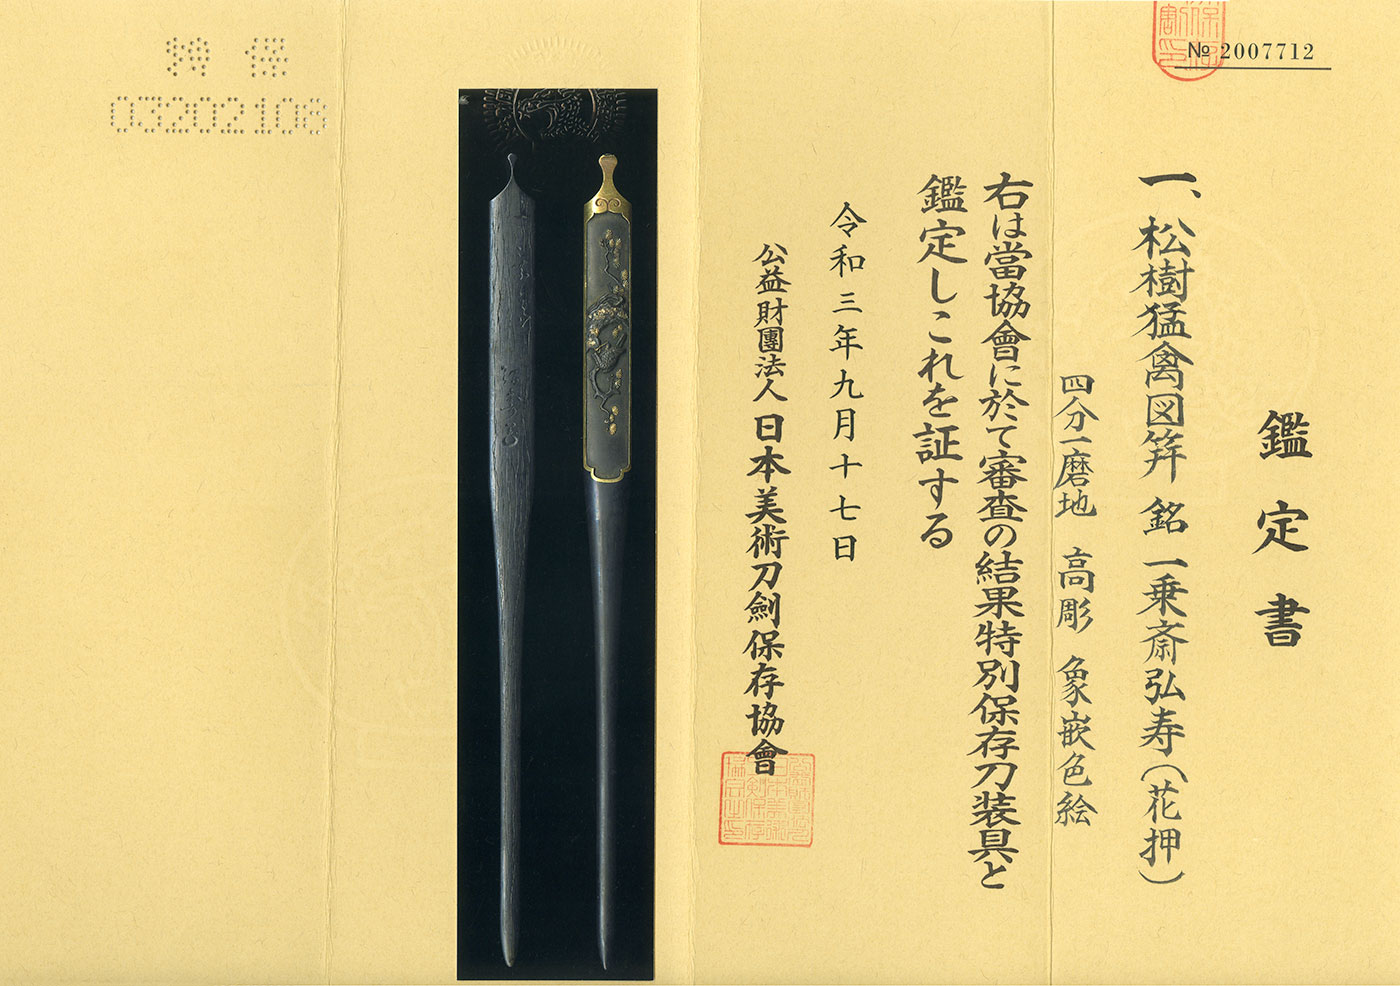 № 2007712
鑑定書
一、松樹猛禽図笄 銘 一乗斎弘寿(花押)
四分一磨地 高彫 象嵌色絵
右は當協會に於て審査の結果特別保存刀装具と
鑑定しこれを証する
令和三年九月十七日
公益財團法人 日本美術刀劍保存協會
特 保